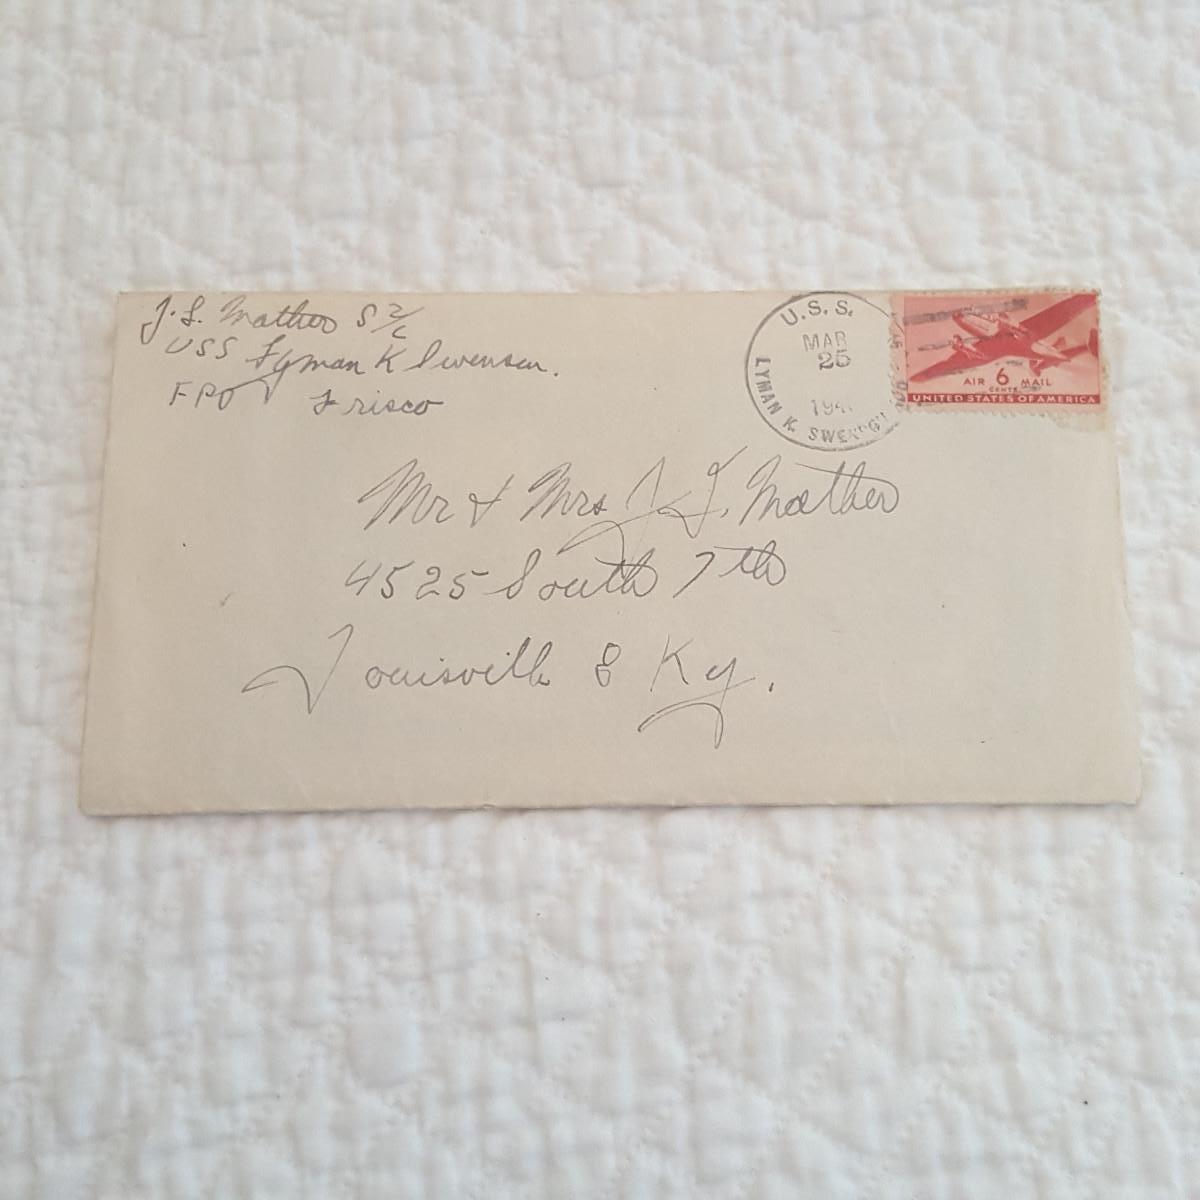 J. L. Mather S 2/c
USS Lyman K Swenson.
FPO Frisco
U.S.S.
MAR
25
194
LYMAN K. SWENSON
AIR 6 MAIL
CENTS
UNITED STATES OF AMERICA
Mr & Mrs J. L. Mather
4525 South 7th
Louisville 8 Ky.